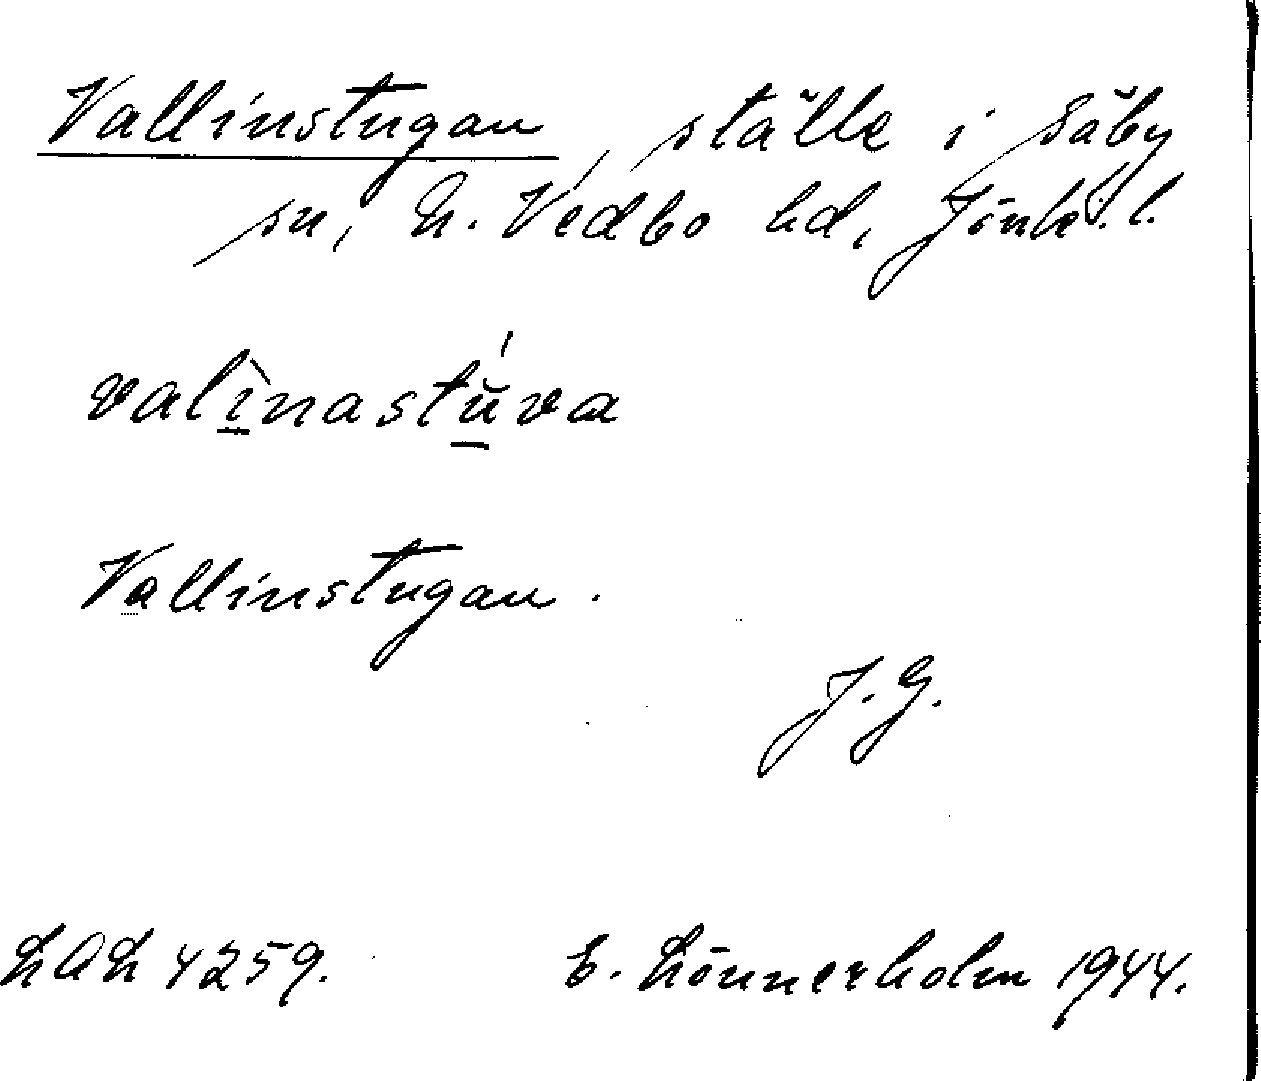 Vallinstugan, ställe i Säby
sn, N. Vedbo hd, Jönk. l.
valìnastŭ́va
Vallinstugan.
J. G.
LAL 4259. E. Lönnerholm 1944.